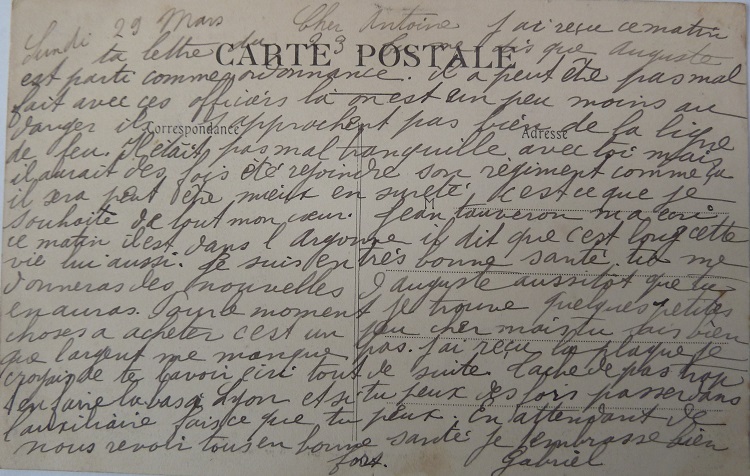 Lundi 29 Mars Cher Antoine J'ai reçu ce matin
ta lettre du 23 je vois que Auguste
CARTE POSTALE
est parti comme ordonnance. il a peut être pas mal
fait avec ces officiers la on est un peu moins au
Correspondance
Adresse
danger il s'approchent pas bien de la ligne
de feu. Il était pas mal tranquille avec toi mais
il aurait des fois été rejoindre son régiment comme ça
il sera peut être mieux en sureté. C'est ce que je
M
souhaite de tout mon cœur. Jean tauveron ma ecri
ce matin il est dans l'Argonne il dit que c'est long cette
vie lui aussi. Je suis en très bonne santé. tu me
donneras des nouvelles d'auguste aussitot que tu
en auras. Pour le moment je trouve quelques petites
choses a acheter c'est un peu cher mais tu sais bien
que l'argent me manque pas. J'ai reçu la plaque je
croyais de te l'avoir ecri tout de suite. tache de pas trop
t'en faire la bas a Lyon et si tu peux des fois passer dans
l'auxiliaire fais ce que tu peux. En attendant de
nous revoir tous en bonne santé je t'embrasse bien
fort. Gabriel